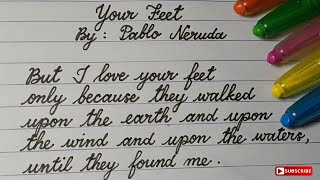 Your Feet
By : Pablo Neruda
But I love your feet
only because they walked
upon the earth and upon
the wind and upon the waters,
until they found me .
SUBSCRIBE